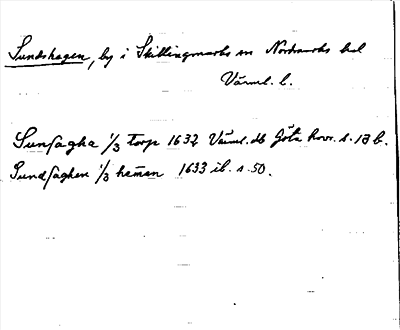 Sundshagen, by i Skillingmarks sn Nordmarks hd
Värml. l.
Sunſagha 1/3 torp 1632 Värml. db Göta hovr. s. 13 b.
Sundſaghen 1/3 hem̄an 1633 ib. s. 50.